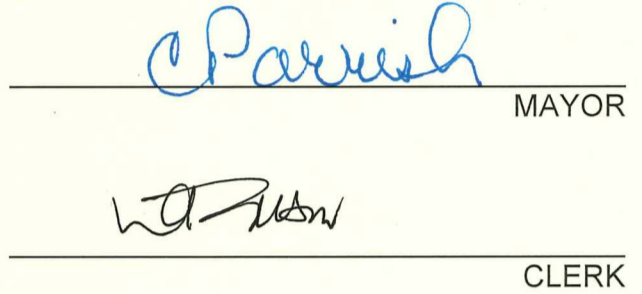 CParrish
MAYOR
CLERK